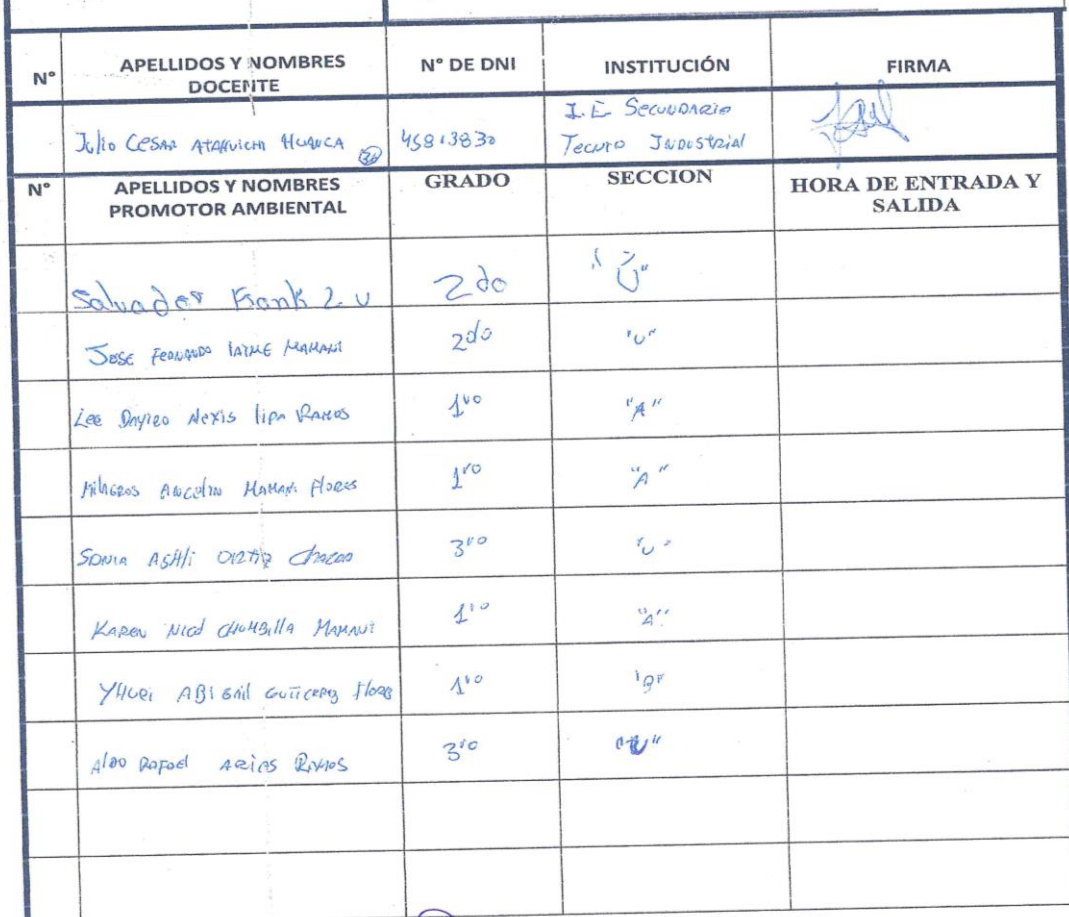 N° APELLIDOS Y NOMBRES DOCENTE N° DE DNI INSTITUCIÓN FIRMA
Julio CESAR HUANCA 45813830 I.E SECUNDARIO
TECNICO INDUSTRIAL
N° APELLIDOS Y NOMBRES PROMOTOR AMBIENTAL GRADO SECCION HORA DE ENTRADA Y SALIDA
Salvador Frank 2 U 2do "U"
JOSE FERNANDO MAMANI 2do "U"
Lee Alexis lipa RAMOS 1ro "A"
MILAGROS MAMANI Flores 1ro "A"
SONIA ASHli 3ro "U"
KAREN Nicol CHUMBIllA MAMANI 1ro "A"
ABIGAIL GUTIERREZ Flores 1ro
Aldo Rafael ARIAS RAMOS 3ro "U"